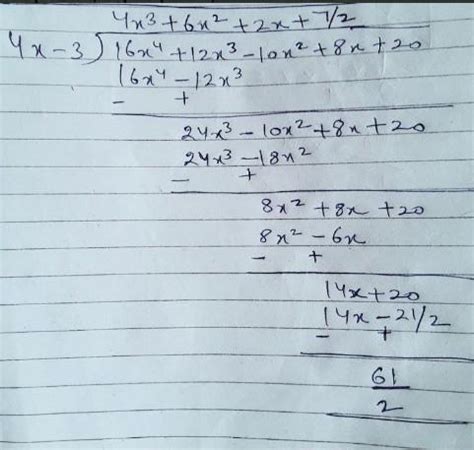 4x³ + 6x² + 2x + 7/2
4x - 3 ) 16x⁴ + 12x³ - 10x² + 8x + 20
16x⁴ - 12x³
- +
24x³ - 10x² + 8x + 20
24x³ - 18x²
- +
8x² + 8x + 20
8x² - 6x
- +
14x + 20
14x - 21/2
- +
61
2